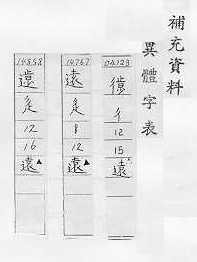 補充資料
異體字表
彳
12
15
遠
14767
辵
8
12
遠▲
14858
辵
12
16
遠▲